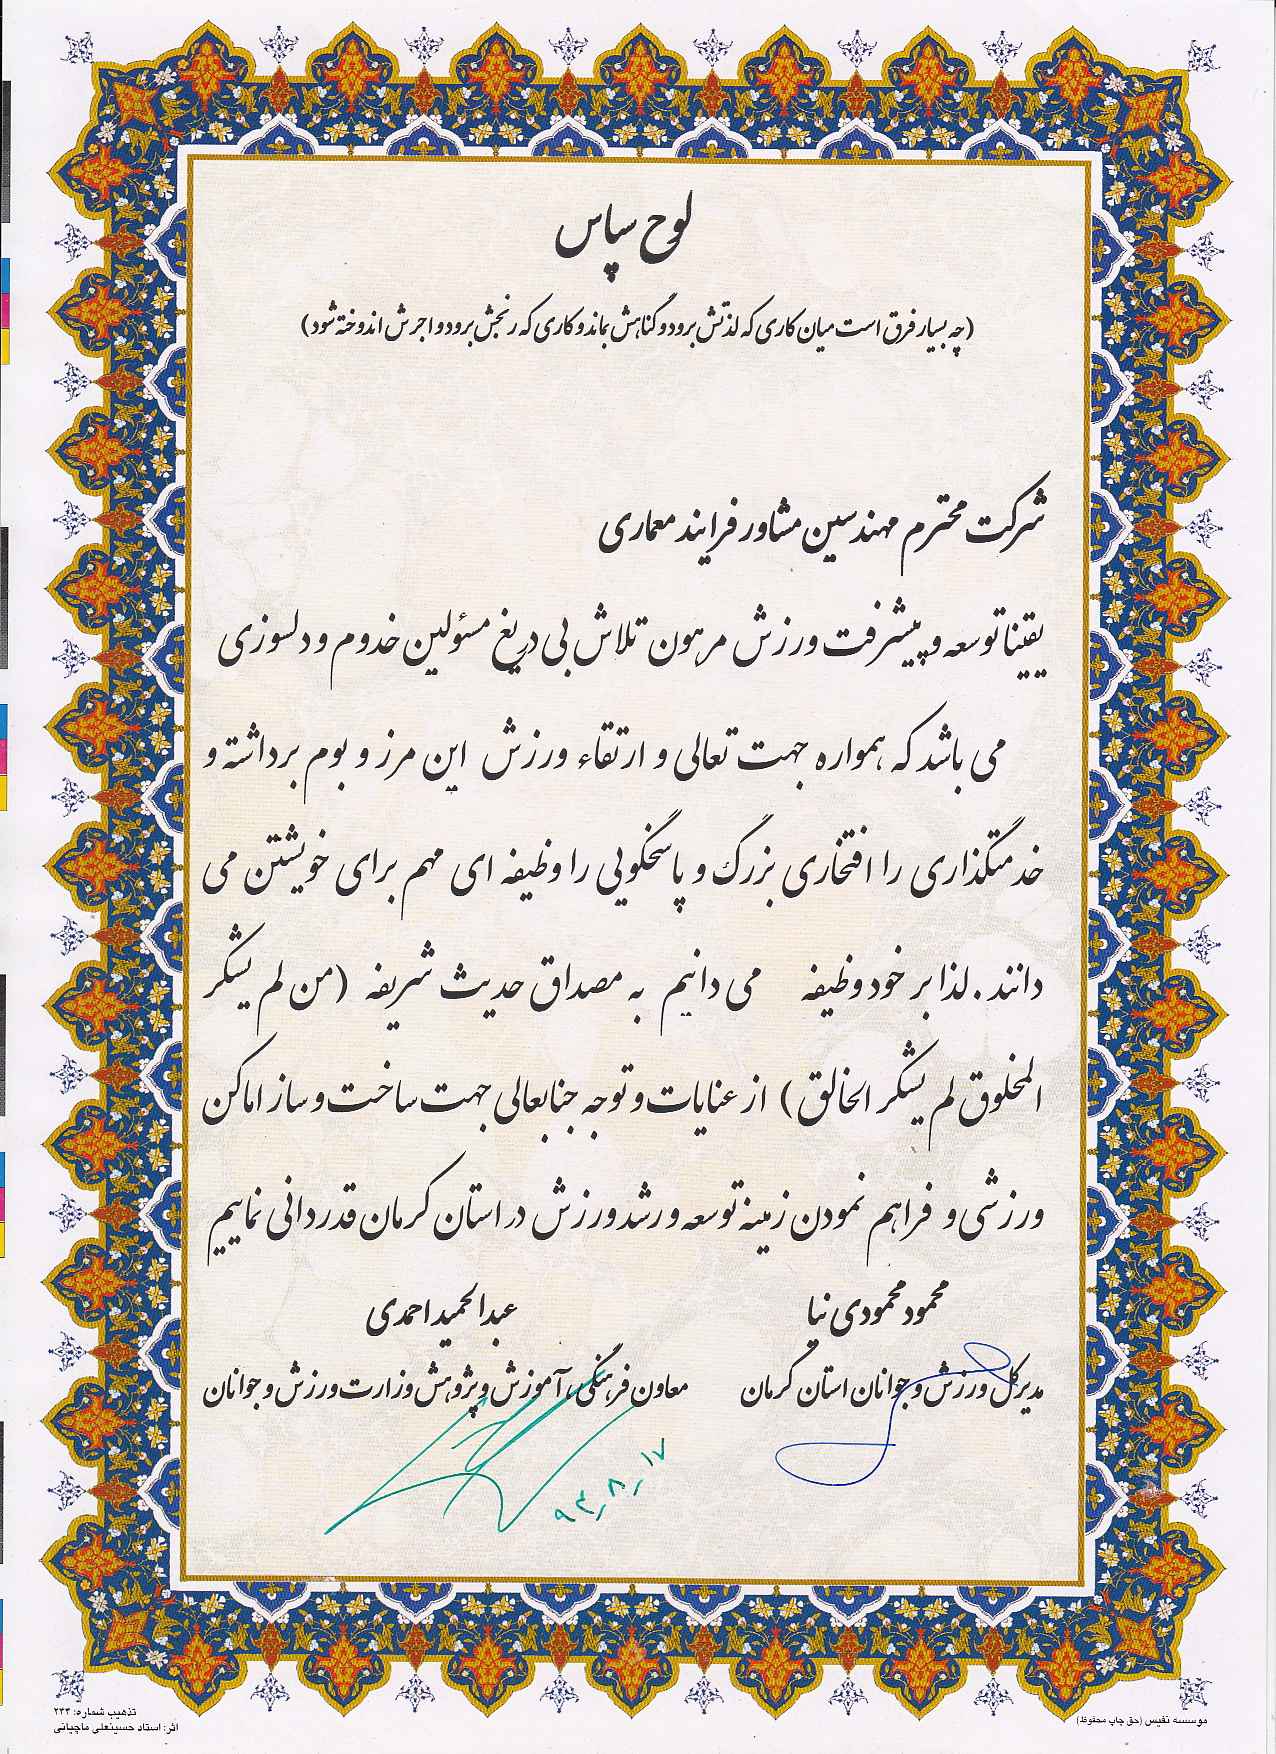 لوح سپاس
(چه بسیار فرق است میان کاری که لذتش برود و گناهش بماند و کاری که رنجش برود و اجرش اندوخته شود)
شرکت محترم مهندسین مشاور فرایند معماری
یقینا توسعه و پیشرفت ورزش مرهون تلاش بی دریغ مسئولین خدوم و دلسوزی
می باشد که همواره جهت تعالی و ارتقاء ورزش این مرز و بوم برداشته و
خدمتگذاری را افتخاری بزرگ و پاسخگویی را وظیفه ای مهم برای خویشتن می
دانند. لذا بر خود وظیفه می دانیم به مصداق حدیث شریفه (من لم یشکر
المخلوق لم یشکر الخالق) از عنایات و توجه جنابعالی جهت ساخت و ساز اماکن
ورزشی و فراهم نمودن زمینه توسعه و رشد ورزش در استان کرمان قدردانی نماییم
محمود محمودی نیا
عبدالحمید احمدی
مدیرکل ورزش و جوانان استان کرمان
معاون فرهنگی، آموزش و پژوهش وزارت ورزش و جوانان
۹۳،۸،۱۷
موسسه نفیس (حق چاپ محفوظ)
تذهیب شماره: ۲۴۴
اثر: استاد حسینعلی ماچیانی